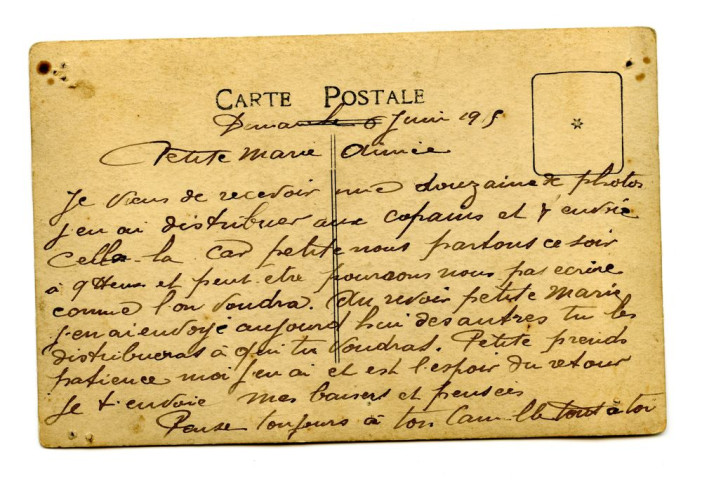 CARTE POSTALE
Dimanche 6 Juin 1915
Petite Marie Aimée
Je viens de recevoir une douzaine de photos
j'en ai distribuer aux copains et t'envoie
celle-la car petite nous partons ce soir
à 9 Heures et peut etre pourrons nous pas ecrire
comme l'on voudra. Au revoir petite Marie
j'en ai envoyé aujourd'hui des autres tu les
distribueras à qui tu voudras. Petite prends
patience moi j'en ai et est l'espoir du retour
Je t'envoie mes baisers et pensees
Pense toujours à ton Camille tout à toi